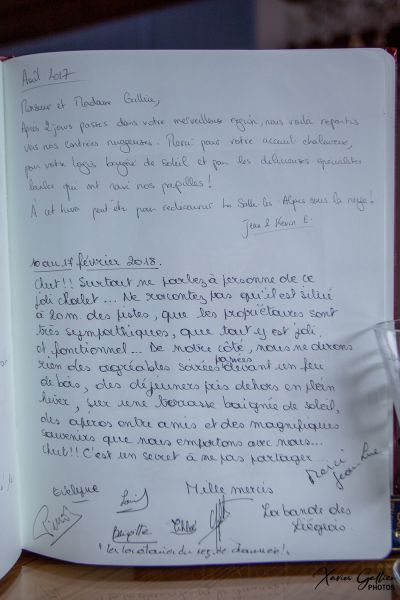 Août 2017
Monsieur et Madame Gallice,
Après 2 jours passés dans votre merveilleuse région, nous voilà repartis
vers nos contrées nuageuses. Merci pour votre accueil chaleureux,
pour votre logis baigné de soleil et par les délicieuses spécialités
locales qui ont ravi nos papilles !
À cet hiver peut-être pour redécouvrir La Salle-les-Alpes sous la neige !
Jean & Kévin E.
10 au 17 février 2018.
Chut!! Surtout ne parlez à personne de ce
joli chalet... Ne racontez pas qu'il est situé
à 20 m. des pistes, que les propriétaires sont
très sympathiques, que tout y est joli
et fonctionnel... De notre côté, nous ne dirons
rien des agréables soirées passées devant un feu
de bois, des déjeuners pris dehors en plein
hiver, sur une terrasse baignée de soleil,
des apéros entre amis et des magnifiques
souvenirs que nous emportons avec nous...
Chut!! C'est un secret à ne pas partager...
Merci
Jean-Luc
Evelyne
Mille mercis
La bande des
Liégeois.
Brigitte
Chloé
"Les locataires du rez de chaussée"!
Xavier Gallice
PHOTOS